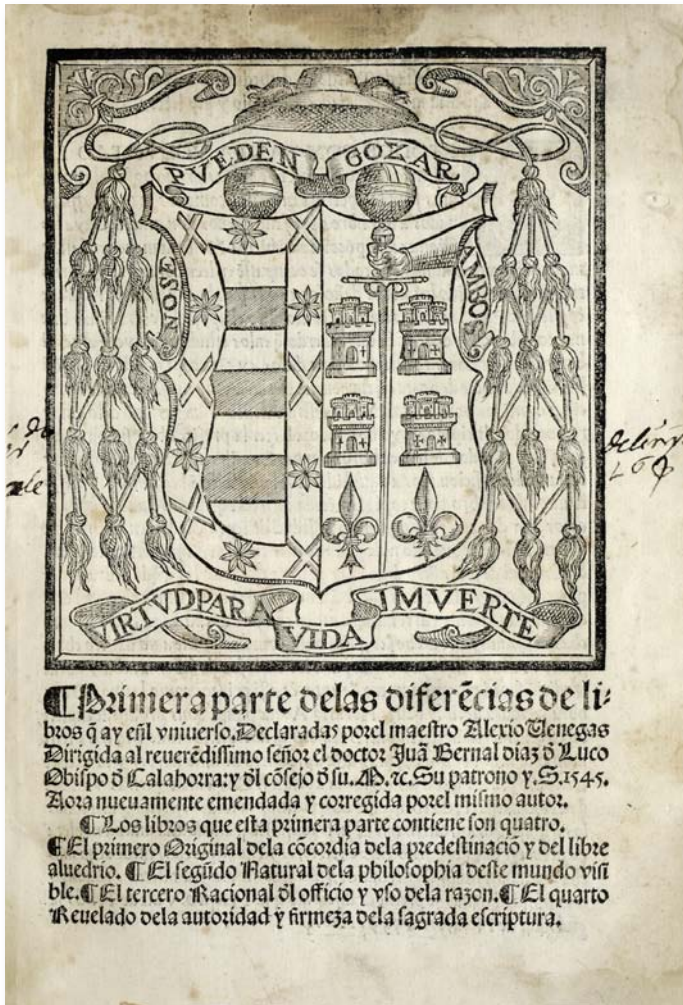 PVEDEN GOZAR
NOSE
AMBOS
VIRTVD PARA VIDA IMVERTE
¶ Primera parte delas diferẽcias de li-
bros q̃ ay eñl vniuerso. Declaradas porel maestro Alexio Uenegas
Dirigida al reuerẽdissimo señor el doctor Juã Bernal diaz ð Luco
Obispo ð Calahorra: y ðl cõsejo ð su. M. ⁊c. Su patrono y. S. 1545.
Aora nueuamente emendada y corregida porel mismo autor.
¶ Los libros que esta primera parte contiene son quatro.
¶ El primero Original dela cõcordia dela predestinaciõ y del libre
aluedrio. ¶ El segũdo Natural dela philosophia deste mundo visi
ble. ¶ El tercero Racional ðl officio y vso dela razon. ¶ El quarto
Reuelado dela autoridad y firmeza dela sagrada escriptura.